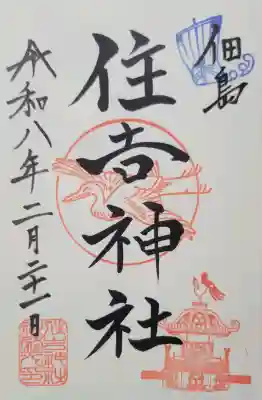 佃島
住吉神社
令和八年二月二十一日